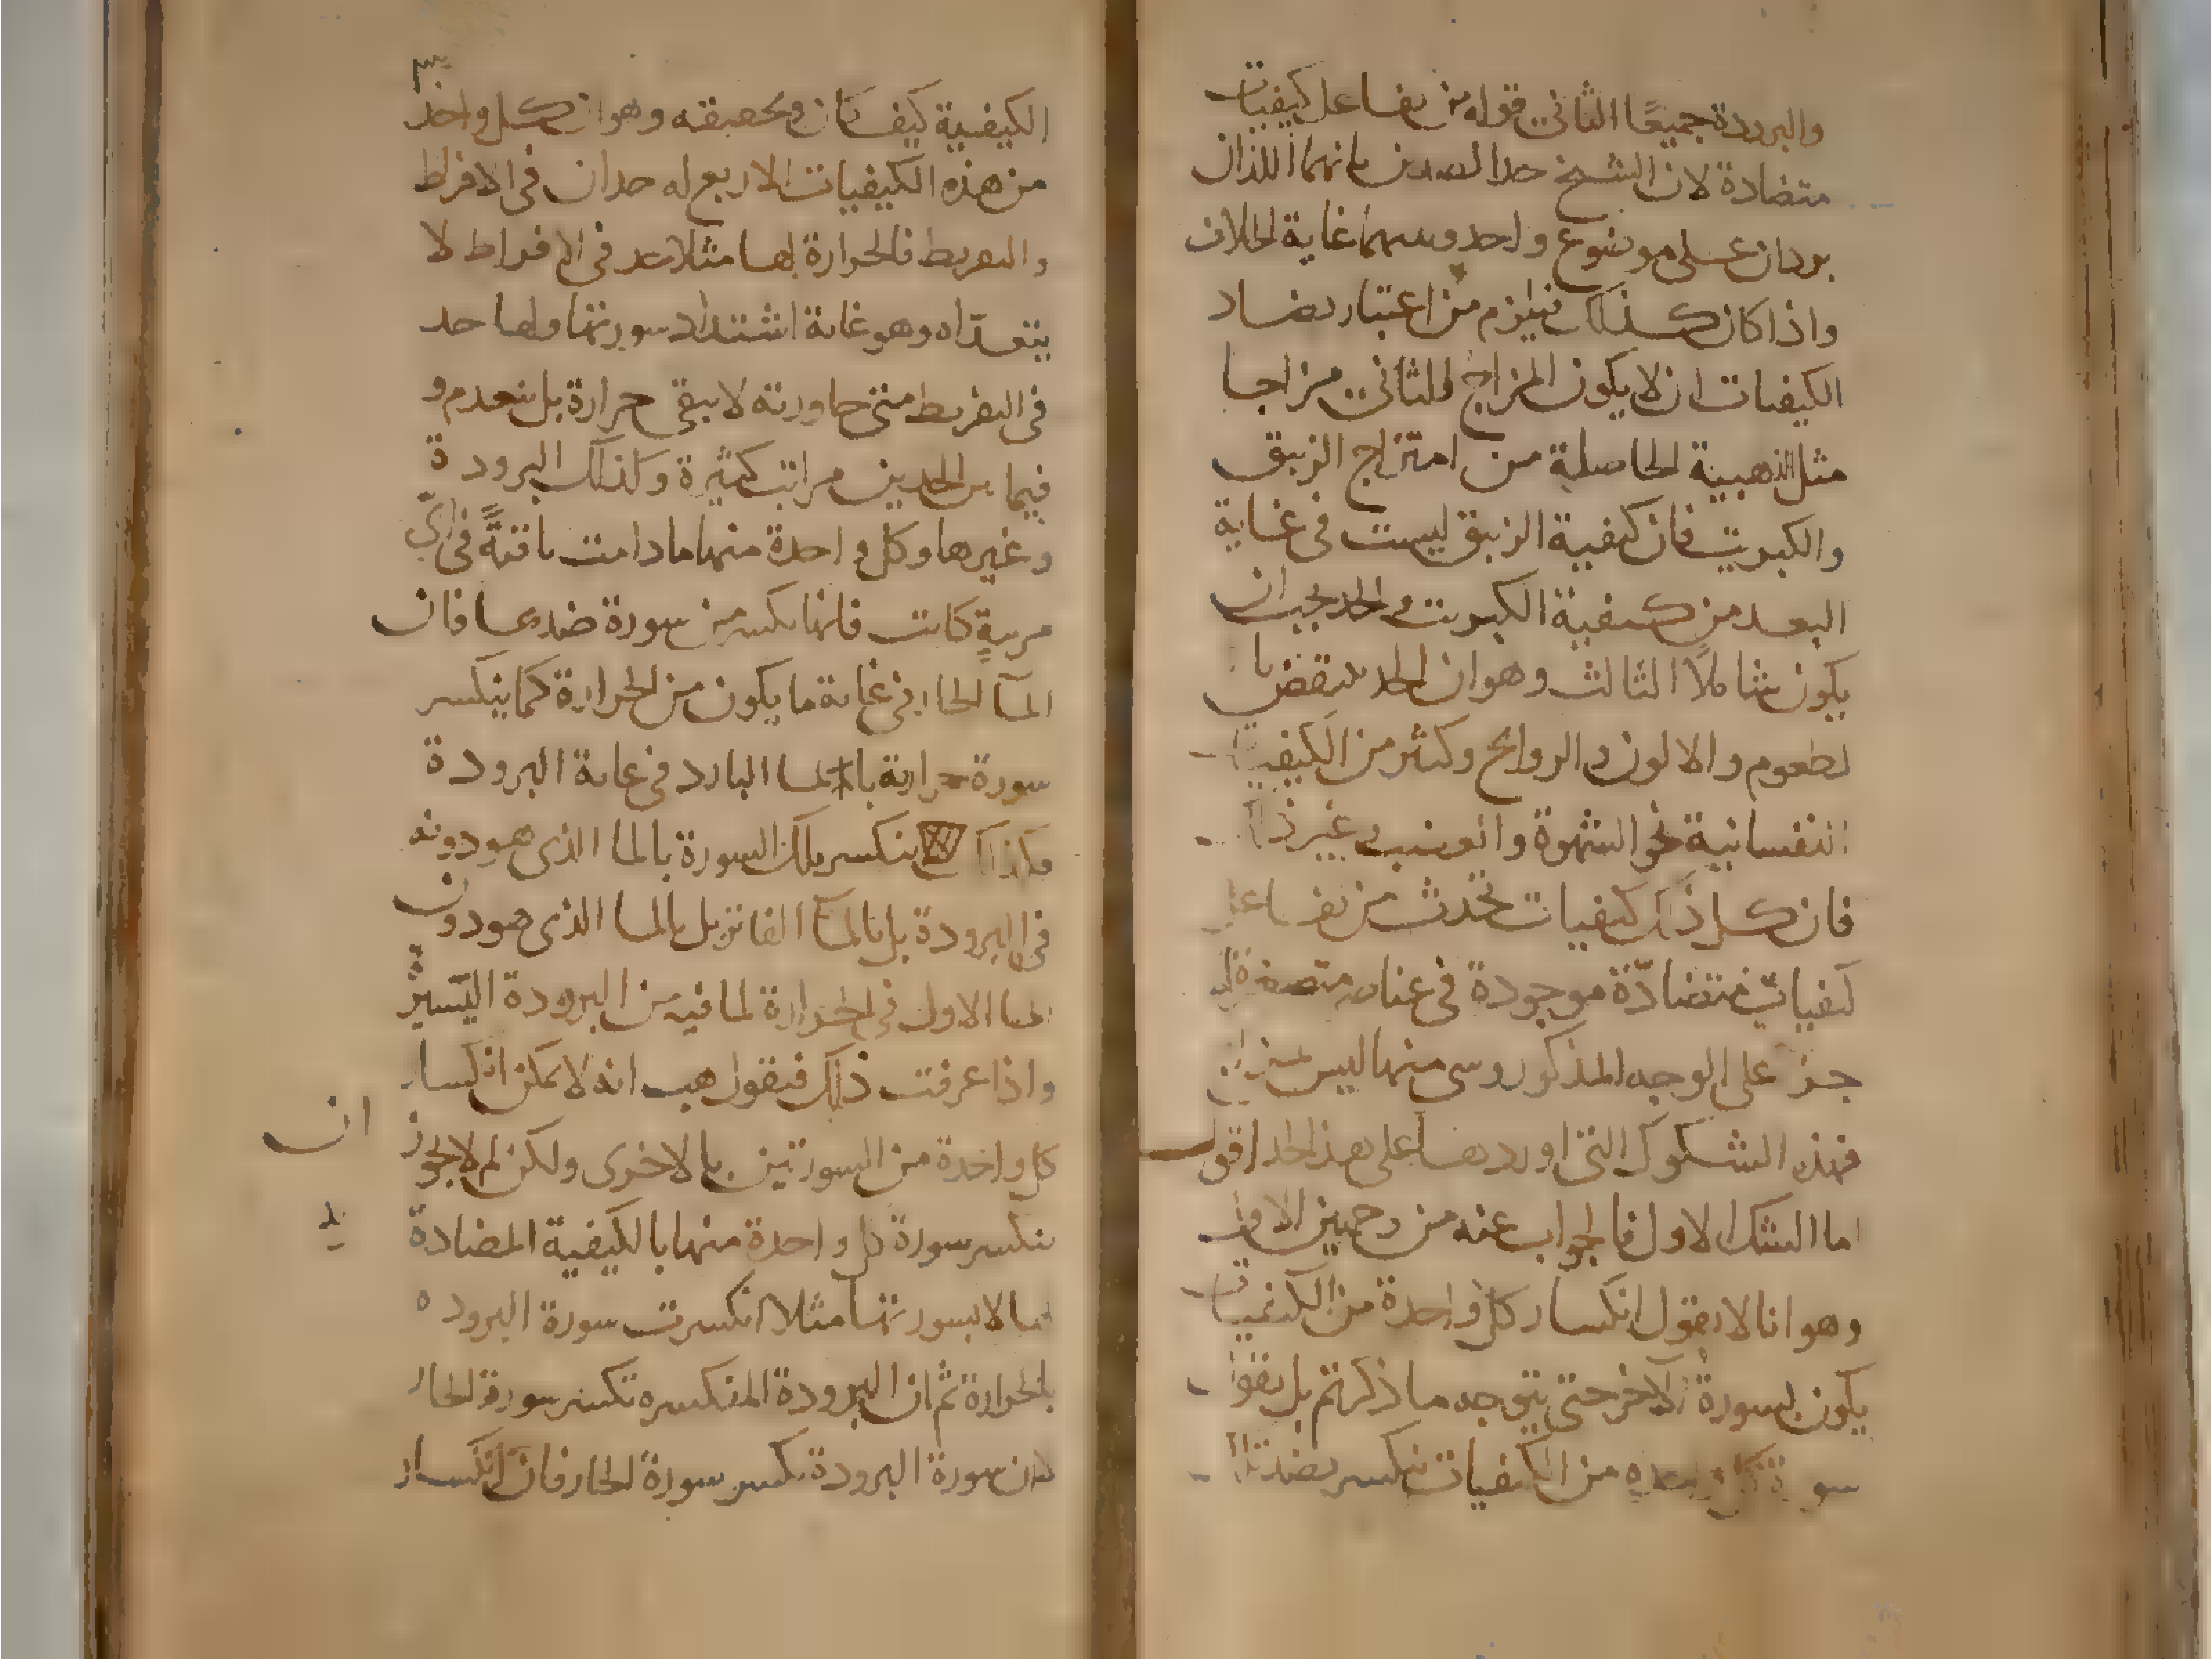 والبرودة جميعًا الثاني قوله من تفاعل كيفيات
متضادة لان الشيخ حد الضدين بانهما اللذان
يردان على موضوع واحد وبينهما غاية الخلاف
واذا كان كذلك فيلزم من اعتبار تضاد
الكيفيات ان لا يكون المزاج الثاني مزاجا
مثل الذهبية الحاصلة من امتزاج الزيبق
والكبريت فان كيفية الزيبق ليست في غاية
البعد من كيفية الكبريت والحد يجب ان
يكون شاملا الثالث وهو ان الحد ينتقض با
لطعوم والالون والروايح وكثير من الكيفيات
النفسانية نحو الشهوة والغضب وغير ذلك
فان كل ذلك كيفيات تحدث من تفاعل
كيفيات متضادّة موجودة في عناصر متصغرة
جز على الوجه المذكور وشي منها ليس بمزاج
فهذه الشكوك التي اوردها على هذا الحد اقول
اما الشك الاول فالجواب عنه من وجهين الاول
وهو انا لا نقول انكسار كل واحدة من الكيفيات
يكون بسورة الاخر حتى يتوجه ما ذكرتم بل نقول
سورة كل واحده من الكيفيات تنكسر بضد تلك
الكيفية كيف كان وتحقيقه وهو ان كل واحد
من هذه الكيفيات الاربع له حدان في الافراط
والتفريط فالحرارة لها مثلا حد في الافراط لا
يتعدّاه وهو غاية اشتداد سورتها ولها حد
في التفريط متى جاورته لا يبقى حرارة بل تنعدم و
فيما بين الحدين مراتب كثيرة وكذلك البرودة
وغيرها وكل واحدة منهما ما دامت باقيةً في ايّ
مرتبةٍ كانت فانها تكسر من سورة ضدها فان
المآ الحار في غاية ما يكون من الحرارة كما ينكسر
سورة حرارته بالما البارد في غاية البرودة
فكذلك تنكسر تلك السورة بالما الذي هو دونه
في البرودة بل بالمآ الفاتر بل بالما الذي هو دون
الما الاول في الحرارة لما فيه من البرودة اليسيرة
واذا عرفت ذلك فنقول هب انه لا يمكن انكسار
كل واحدة من السورتين بالاخرى ولكن لم لا يجوز ان
تنكسر سورة كل واحدة منها بالكيفية المضادة
لها لا بسورتها مثلا انكسرت سورة البروده
بالحرارة ثم ان البرودة المنكسره تكسر سورة الحار
لان سورة البرودة تكسر سورة الحار فان انكسار